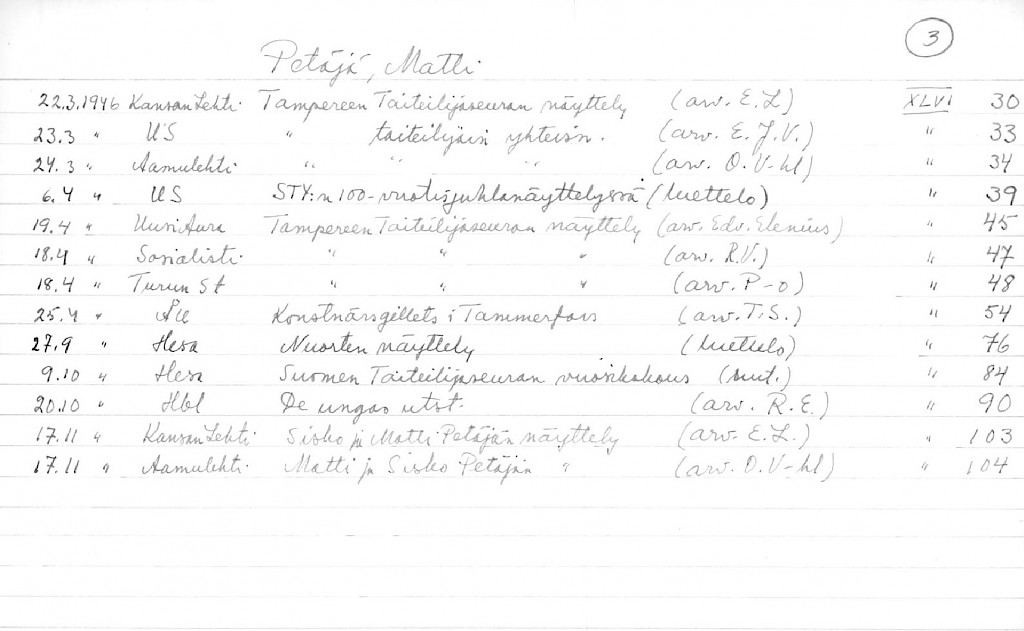 3
Petäjä, Matti
22.3.1946 Kansan Lehti Tampereen Taiteilijaseuran näyttely (arv. E.L) XLVI 30
23.3 " US " taiteilijain yhteisn. (arv. E.J.V.) " 33
24.3 " Aamulehti " " " (arv. O.V-hl) " 34
6.4 " US STY:n 100-vuotisjuhlanäyttelyssä (luettelo) " 39
19.4 " Uusi Aura Tampereen Taiteilijaseuran näyttely (arv. Edv. Elenius) " 45
18.4 " Sosialisti " " " (arv. R.V.) " 47
18.4 " Turun St " " " (arv. P-o) " 48
25.4 " Konstnärsgillets i Tammerfors (arv. T.S.) " 54
27.9 " Hesa Nuorten näyttely (luettelo) " 76
9.10 " Hesa Suomen Taiteilijaseuran vuosikokous (uut.) " 84
20.10 " Hbl De ungas utst. (arv. R.E.) " 90
17.11 " Kansan Lehti Sisko ja Matti Petäjän näyttely (arv. E.L.) " 103
17.11 " Aamulehti Matti ja Sisko Petäjän " (arv. O.V-hl) " 104